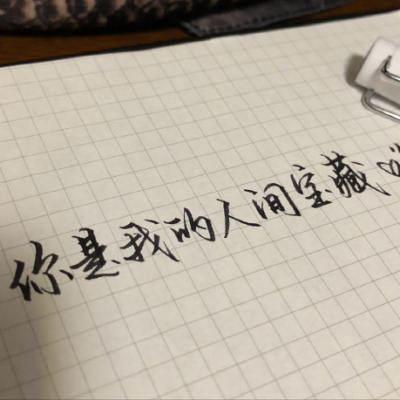 你是我的人间宝藏